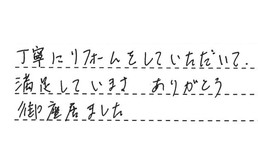 丁寧にリフォームをしていただいて、
満足しています ありがとう
御座居ました